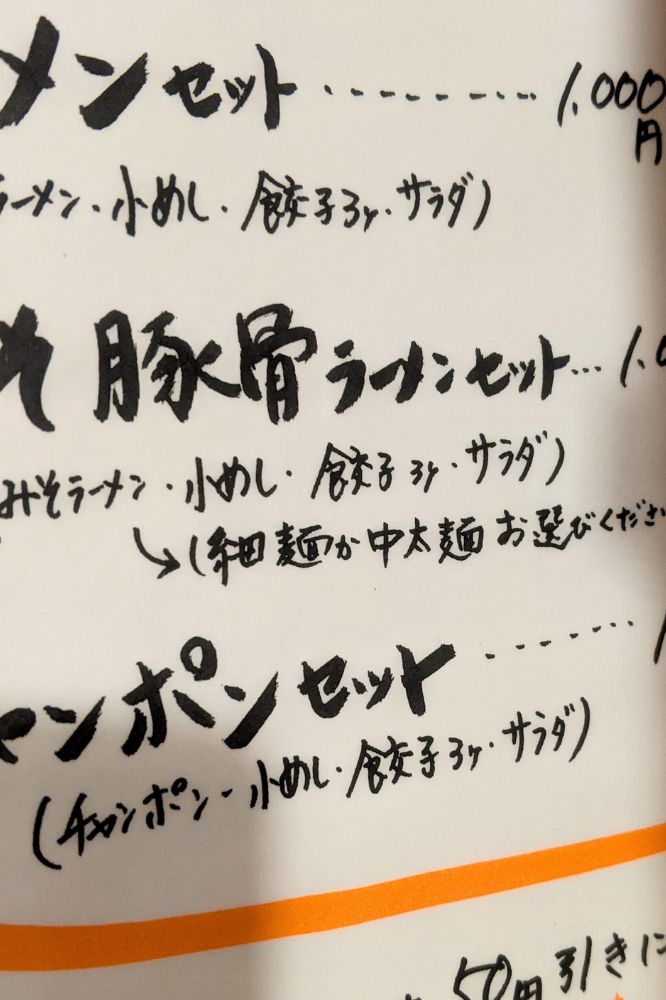 メンセット・・・・・・・・・1,000円
ラーメン・小めし・餃子3ヶ・サラダ)
そ豚骨ラーメンセット…1,0
みそラーメン・小めし・餃子3ヶ・サラダ)
→(細麺か中太麺お選びくださ
ャンポンセット・・・・・・・1
(チャンポン・小めし・餃子3ヶ・サラダ)
50円引きに